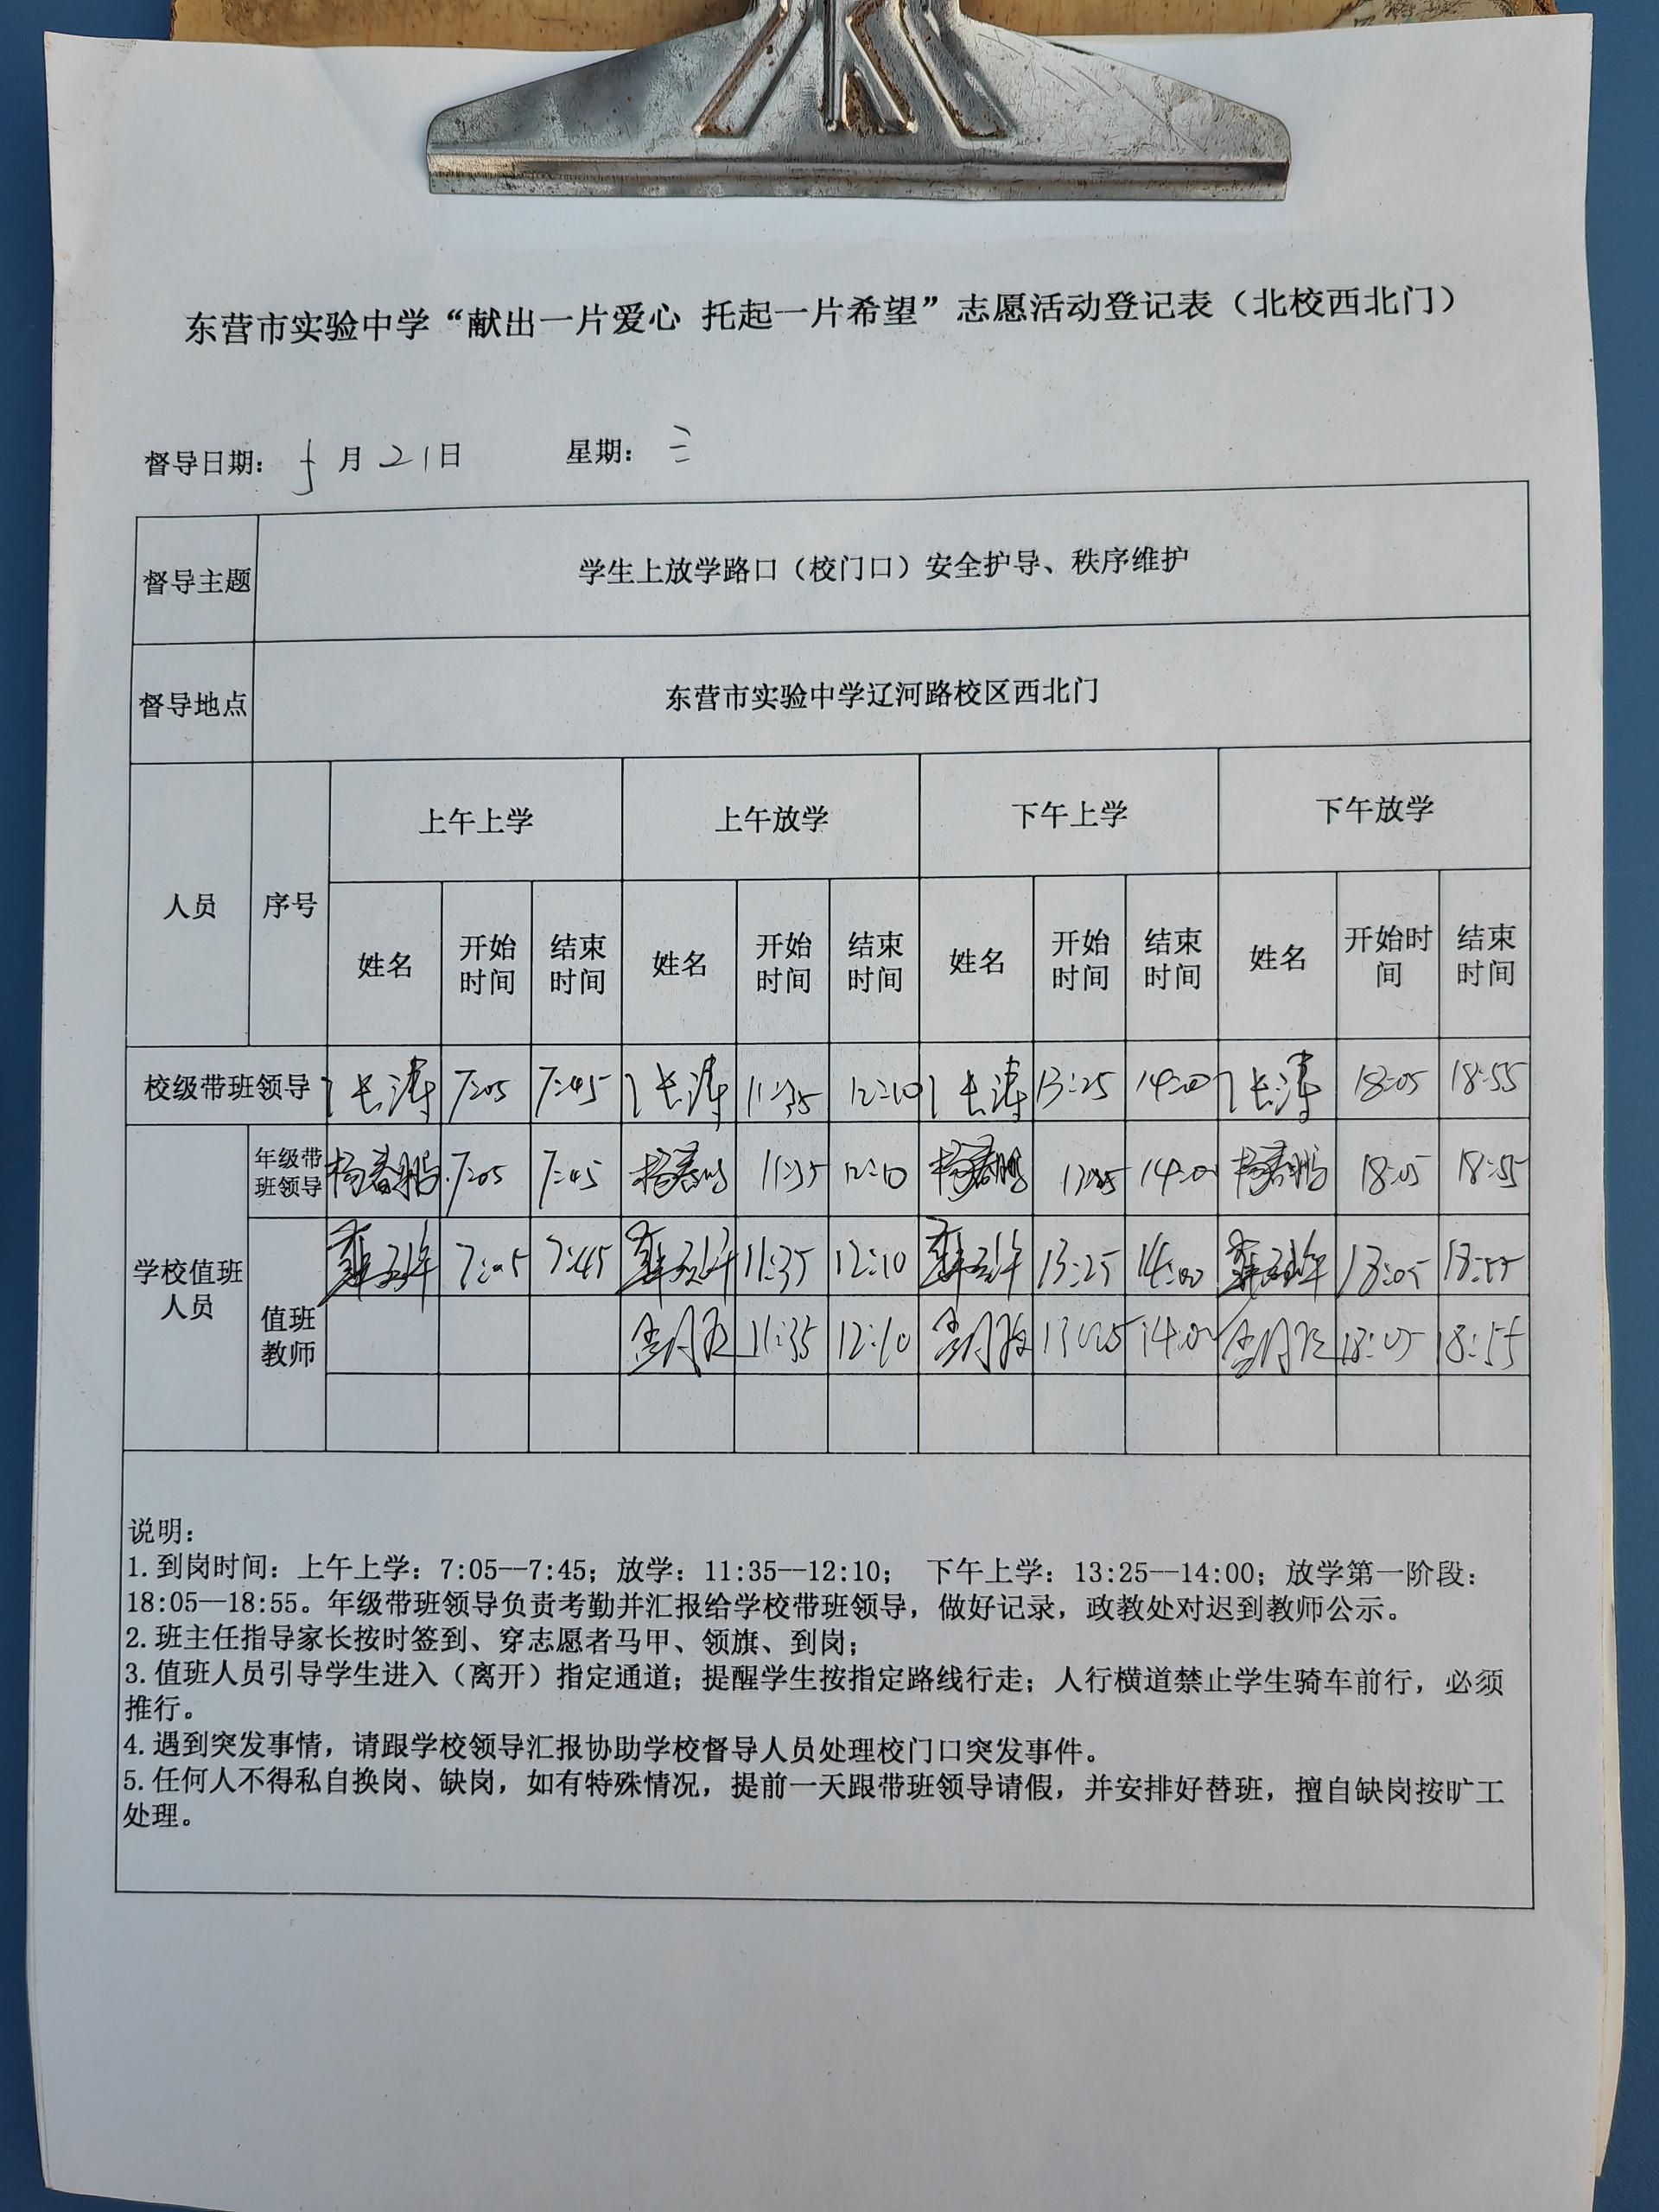 东营市实验中学“献出一片爱心 托起一片希望”志愿活动登记表（北校西北门）
督导日期： 5月21日 星期：三
督导主题 学生上放学路口（校门口）安全护导、秩序维护
督导地点 东营市实验中学辽河路校区西北门
人员 序号 上午上学 上午放学 下午上学 下午放学
姓名 开始时间 结束时间 姓名 开始时间 结束时间 姓名 开始时间 结束时间 姓名 开始时间 结束时间
校级带班领导 长涛 7:05 7:45 长涛 11:35 12:10 长涛 13:25 14:00 长涛 18:05 18:55
学校值班人员
年级带班领导 杨春鹏 7:05 7:45 杨春鹏 11:35 12:10 杨春鹏 13:25 14:00 杨春鹏 18:05 18:55
值班教师 7:05 7:45 11:35 12:10 13:25 14:00 18:05 18:55
11:35 12:10 13:25 14:00 18:05 18:55
说明：
1.到岗时间：上午上学：7:05--7:45；放学：11:35--12:10； 下午上学：13:25--14:00；放学第一阶段：
18:05--18:55。年级带班领导负责考勤并汇报给学校带班领导，做好记录，政教处对迟到教师公示。
2.班主任指导家长按时签到、穿志愿者马甲、领旗、到岗；
3.值班人员引导学生进入（离开）指定通道；提醒学生按指定路线行走；人行横道禁止学生骑车前行，必须
推行。
4.遇到突发事情，请跟学校领导汇报协助学校督导人员处理校门口突发事件。
5.任何人不得私自换岗、缺岗，如有特殊情况，提前一天跟带班领导请假，并安排好替班，擅自缺岗按旷工
处理。